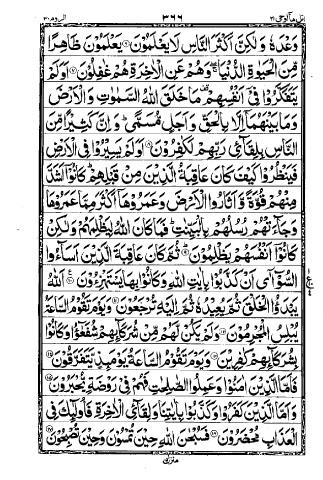 اتل ماۤ اوحی ۲۱ ۳۶۶ الروم ۳۰
وَعْدَهٗ وَلٰكِنَّ اَكْثَرَ النَّاسِ لَا يَعْلَمُوْنَ ۝ يَعْلَمُوْنَ ظَاهِرًا
مِّنَ الْحَيٰوةِ الدُّنْيَا ۖ وَهُمْ عَنِ الْاٰخِرَةِ هُمْ غٰفِلُوْنَ ۝ اَوَلَمْ
يَتَفَكَّرُوْا فِيْٓ اَنْفُسِهِمْ ۗ مَا خَلَقَ اللّٰهُ السَّمٰوٰتِ وَالْاَرْضَ
وَمَا بَيْنَهُمَآ اِلَّا بِالْحَقِّ وَاَجَلٍ مُّسَمًّى ؕ وَاِنَّ كَثِيْرًا مِّنَ
النَّاسِ بِلِقَآئِ رَبِّهِمْ لَكٰفِرُوْنَ ۝ اَوَلَمْ يَسِيْرُوْا فِي الْاَرْضِ
فَيَنْظُرُوْا كَيْفَ كَانَ عَاقِبَةُ الَّذِيْنَ مِنْ قَبْلِهِمْ ؕ كَانُوْٓا اَشَدَّ
مِنْهُمْ قُوَّةً وَّاَثَارُوا الْاَرْضَ وَعَمَرُوْهَآ اَكْثَرَ مِمَّا عَمَرُوْهَا
وَجَآءَتْهُمْ رُسُلُهُمْ بِالْبَيِّنٰتِ ؕ فَمَا كَانَ اللّٰهُ لِيَظْلِمَهُمْ وَلٰكِنْ
كَانُوْٓا اَنْفُسَهُمْ يَظْلِمُوْنَ ۝ ثُمَّ كَانَ عَاقِبَةَ الَّذِيْنَ اَسَآءُوا
السُّوْٓاٰى اَنْ كَذَّبُوْا بِاٰيٰتِ اللّٰهِ وَكَانُوْا بِهَا يَسْتَهْزِءُوْنَ ۝ اَللّٰهُ
يَبْدَؤُا الْخَلْقَ ثُمَّ يُعِيْدُهٗ ثُمَّ اِلَيْهِ تُرْجَعُوْنَ ۝ وَيَوْمَ تَقُوْمُ السَّاعَةُ
يُبْلِسُ الْمُجْرِمُوْنَ ۝ وَلَمْ يَكُنْ لَّهُمْ مِّنْ شُرَكَآئِهِمْ شُفَعٰٓؤُا وَكَانُوْا
بِشُرَكَآئِهِمْ كٰفِرِيْنَ ۝ وَيَوْمَ تَقُوْمُ السَّاعَةُ يَوْمَئِذٍ يَّتَفَرَّقُوْنَ ۝
فَاَمَّا الَّذِيْنَ اٰمَنُوْا وَعَمِلُوا الصّٰلِحٰتِ فَهُمْ فِيْ رَوْضَةٍ يُّحْبَرُوْنَ ۝
وَاَمَّا الَّذِيْنَ كَفَرُوْا وَكَذَّبُوْا بِاٰيٰتِنَا وَلِقَآئِ الْاٰخِرَةِ فَاُولٰٓئِكَ فِي
الْعَذَابِ مُحْضَرُوْنَ ۝ فَسُبْحٰنَ اللّٰهِ حِيْنَ تُمْسُوْنَ وَحِيْنَ تُصْبِحُوْنَ ۝